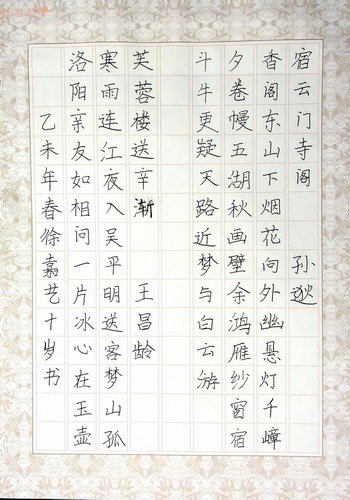 宿云门寺阁 孙逖
香阁东山下烟花向外幽悬灯千嶂
夕卷幔五湖秋画壁余鸿雁纱窗宿
斗牛更疑天路近梦与白云游
芙蓉楼送辛渐 王昌龄
寒雨连江夜入吴平明送客梦山孤
洛阳亲友如相问一片冰心在玉壶
乙未年春徐嘉艺十岁书